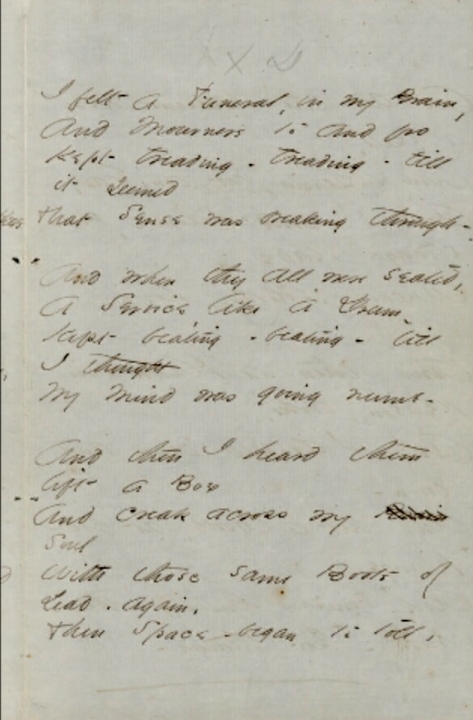 I felt a Funeral, in my Brain,
And Mourners to and fro
Kept treading - treading - till
it seemed
That Sense was breaking through -
And when they all were seated,
A Service, like a Drum -
Kept beating - beating - till
I thought
My Mind was going numb -
And then I heard them
lift a Box
And creak across my
Soul
With those same Boots of
Lead, again,
Then Space - began to toll,